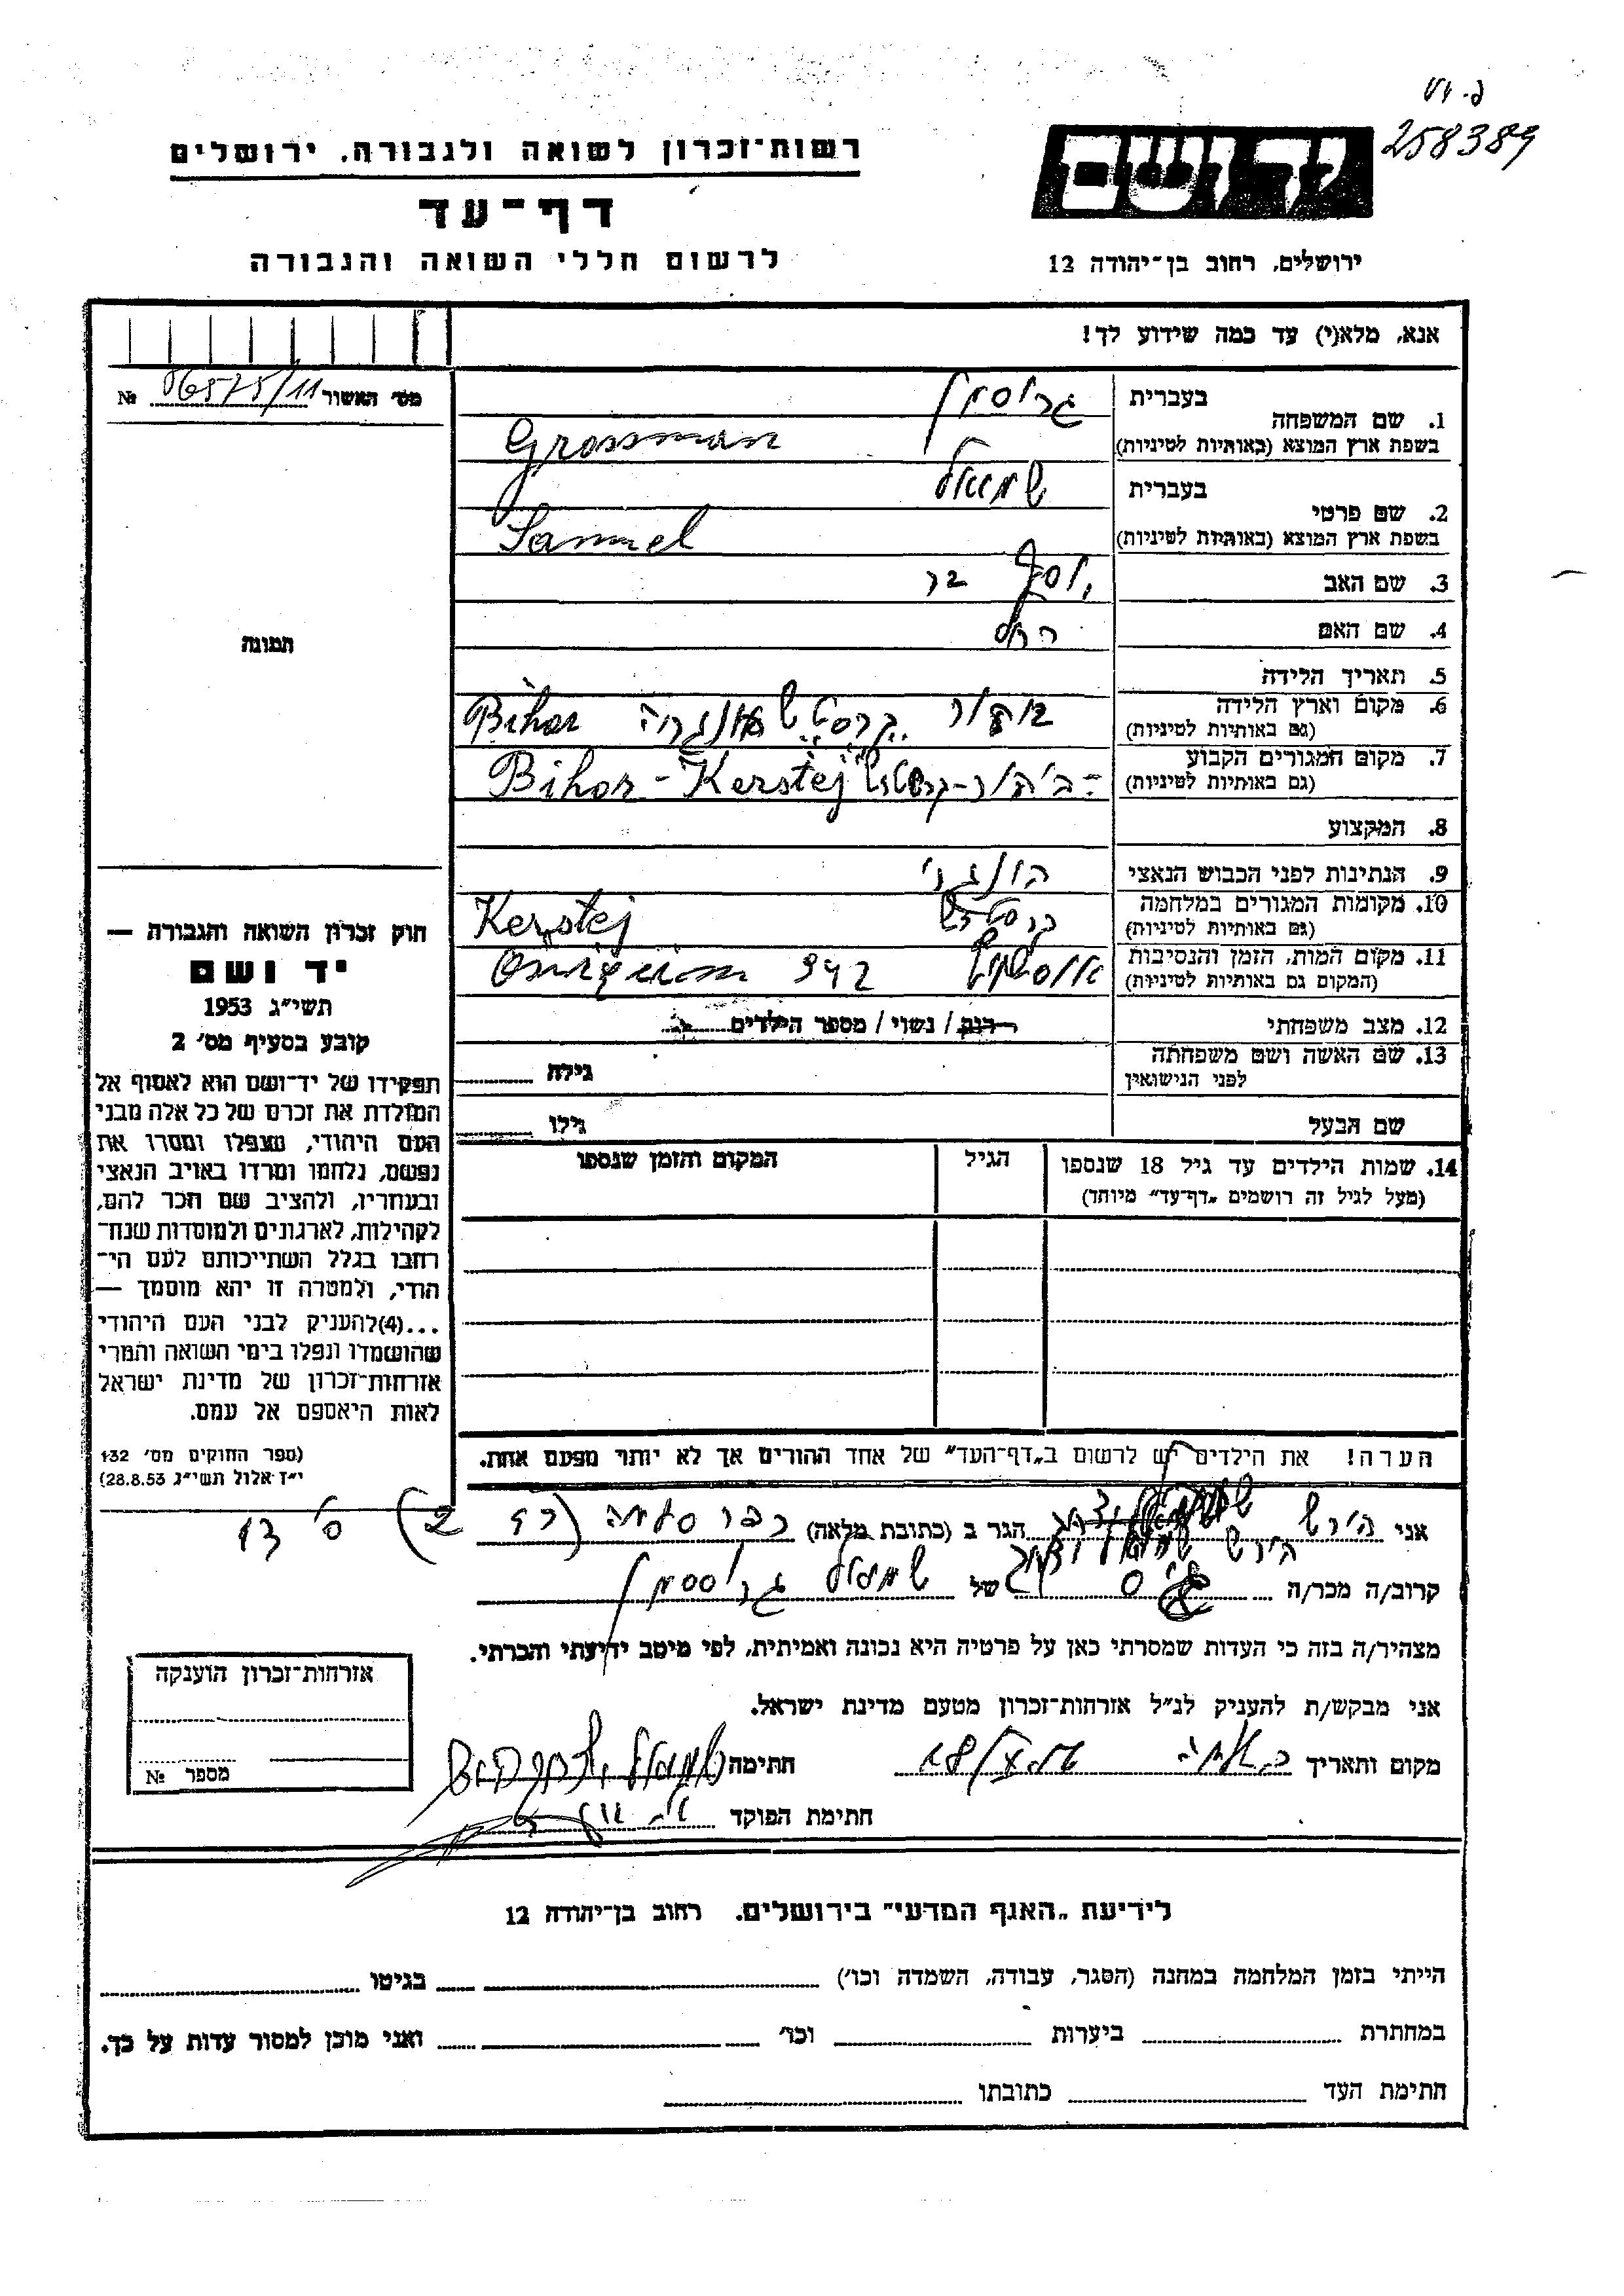 258389
יד ושם
רשות־זכרון לשואה ולגבורה, ירושלים
דף־עד
לרשום חללי השואה והגבורה
ירושלים, רחוב בן־יהודה 12
אנא, מלא(י) עד כמה שידוע לך!
מס׳ האשור 06575/11 №
1. שם המשפחה
בעברית גרוסמן
בשפת ארץ המוצא (באותיות לטיניות) Grossman
2. שם פרטי
בעברית שמואל
בשפת ארץ המוצא (באותיות לטיניות) Samuel
3. שם האב יוסף
4. שם האם רחל
5. תאריך הלידה
6. מקום וארץ הלידה
(גם באותיות לטיניות) Bihor
7. מקום המגורים הקבוע
(גם באותיות לטיניות) Bihor - Kerstej
8. המקצוע
9. הנתינות לפני הכבוש הנאצי הונגרי
10. מקומות המגורים במלחמה
(גם באותיות לטיניות) Kerstej
11. מקום המות, הזמן והנסיבות
(המקום גם באותיות לטיניות) 942
12. מצב משפחתי רוק / נשוי / מספר הילדים
13. שם האשה ושם משפחתה
לפני הנישואין
גילה
שם הבעל גילו
14. שמות הילדים עד גיל 18 שנספו
(מעל לגיל זה רושמים „דף־עד״ מיוחד)
הגיל
המקום והזמן שנספו
הערה! את הילדים יש לרשום ב„דף־העד״ של אחד ההורים אך לא יותר מפעם אחת.
תמונה
חוק זכרון השואה והגבורה —
יד ושם
תשי״ג 1953
קובע בסעיף מס׳ 2
תפקידו של יד־ושם הוא לאסוף אל
המולדת את זכרם של כל אלה מבני
העם היהודי, שנפלו ומסרו את
נפשם, נלחמו ומרדו באויב הנאצי
ובעוזריו, ולהציב שם וזכר להם,
לקהילות, לארגונים ולמוסדות שנח־
רחבו בגלל השתייכותם לעם הי־
הודי, ולמטרה זו יהא מוסמך —
...(4)להעניק לבני העם היהודי
שהושמדו ונפלו בימי השואה והמרי
אזרחות־זכרון של מדינת ישראל
לאות היאספם אל עמם.
(ספר החוקים מס׳ 132
י״ז אלול תשי״ג 28.8.53)
אני הירש הגר ב (כתובת מלאה)
קרוב/ה מכר/ה של שמואל גרוסמן
מצהיר/ה בזה כי העדות שמסרתי כאן על פרטיה היא נכונה ואמיתית, לפי מיטב ידיעתי והכרתי.
אני מבקש/ת להעניק לנ״ל אזרחות־זכרון מטעם מדינת ישראל.
מקום ותאריך חתימה
חתימת הפוקד
אזרחות־זכרון הוענקה
מספר №
לידיעת „האגף המדעי״ בירושלים. רחוב בן־יהודה 12
הייתי בזמן המלחמה במחנה (הסגר, עבודה, השמדה וכו׳) בגיטו
במחתרת ביערות וכו׳ ואני מוכן למסור עדות על כך.
חתימת העד כתובתו